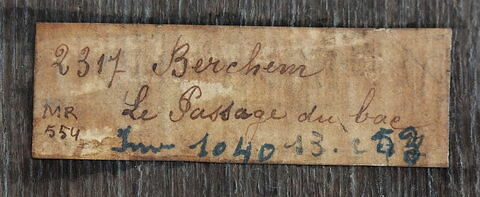 2317 Berchem
MR Le Passage du bac
554 Inv 1040 13.